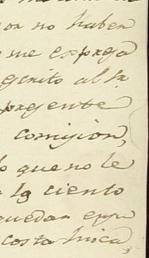 por no haber
me expresa
escrito al Sr
presente
comision,
lo que no le
la ciento
quedan expu
costa Rica,